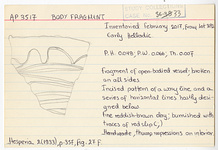 AP 3517 BODY FRAGMENT
Inventoried February 2017, from lot
Early Helladic
P.H. 0.078; P.W. 0.060; Th. 0.007
Fragment of open-bodied vessel; broken
on all sides
Incised pattern of a wavy line and a
series of horizontal lines hastily
below
Fine reddish-brown clay; burnished with
traces of red slip
Handmade, thumb impressions on interior
Hesperia, 2 (1933) p. 357, fig. 27